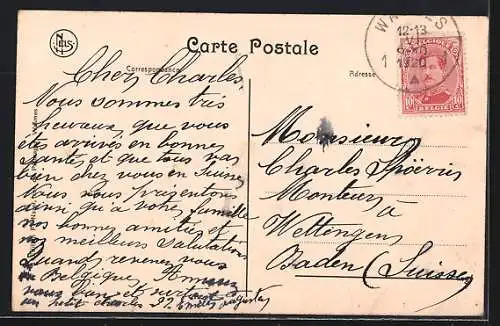 Carte Postale
Correspondance
Adresse
12-13
1920
BELGIQUE
10 10
NELS
Cher Charles,
Nous sommes très
heureux, que vous
êtes arrivés en bonnes
santés et que tous vas
bien chez vous en Suisse
Nous vous présentons
ainsi qu'a votre famille
nos bonnes amitiés et
nos meilleurs salutations
Quand revenez vous
en Belgique,
un petit Charles
Monsieur
Charles Spöerris
Monteur à
Wettengen
Baden (Suisse)